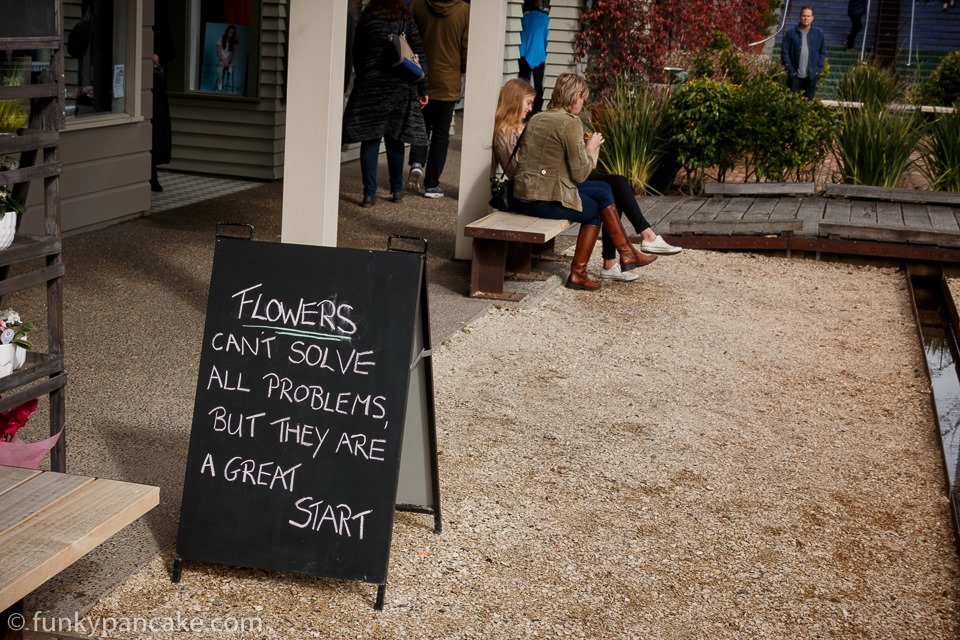 FLOWERS
CAN'T SOLVE
ALL PROBLEMS,
BUT THEY ARE
A GREAT
START
© funkypancake.com